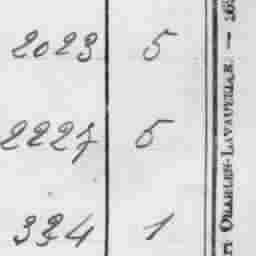 2023 5
2227 5
324 1
CHARLES-LAVAUZELLE. —